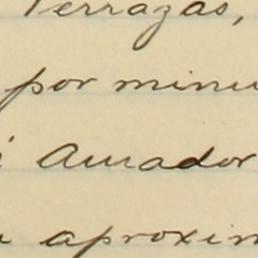 Terrazas,
por minu
Amador
aproxim